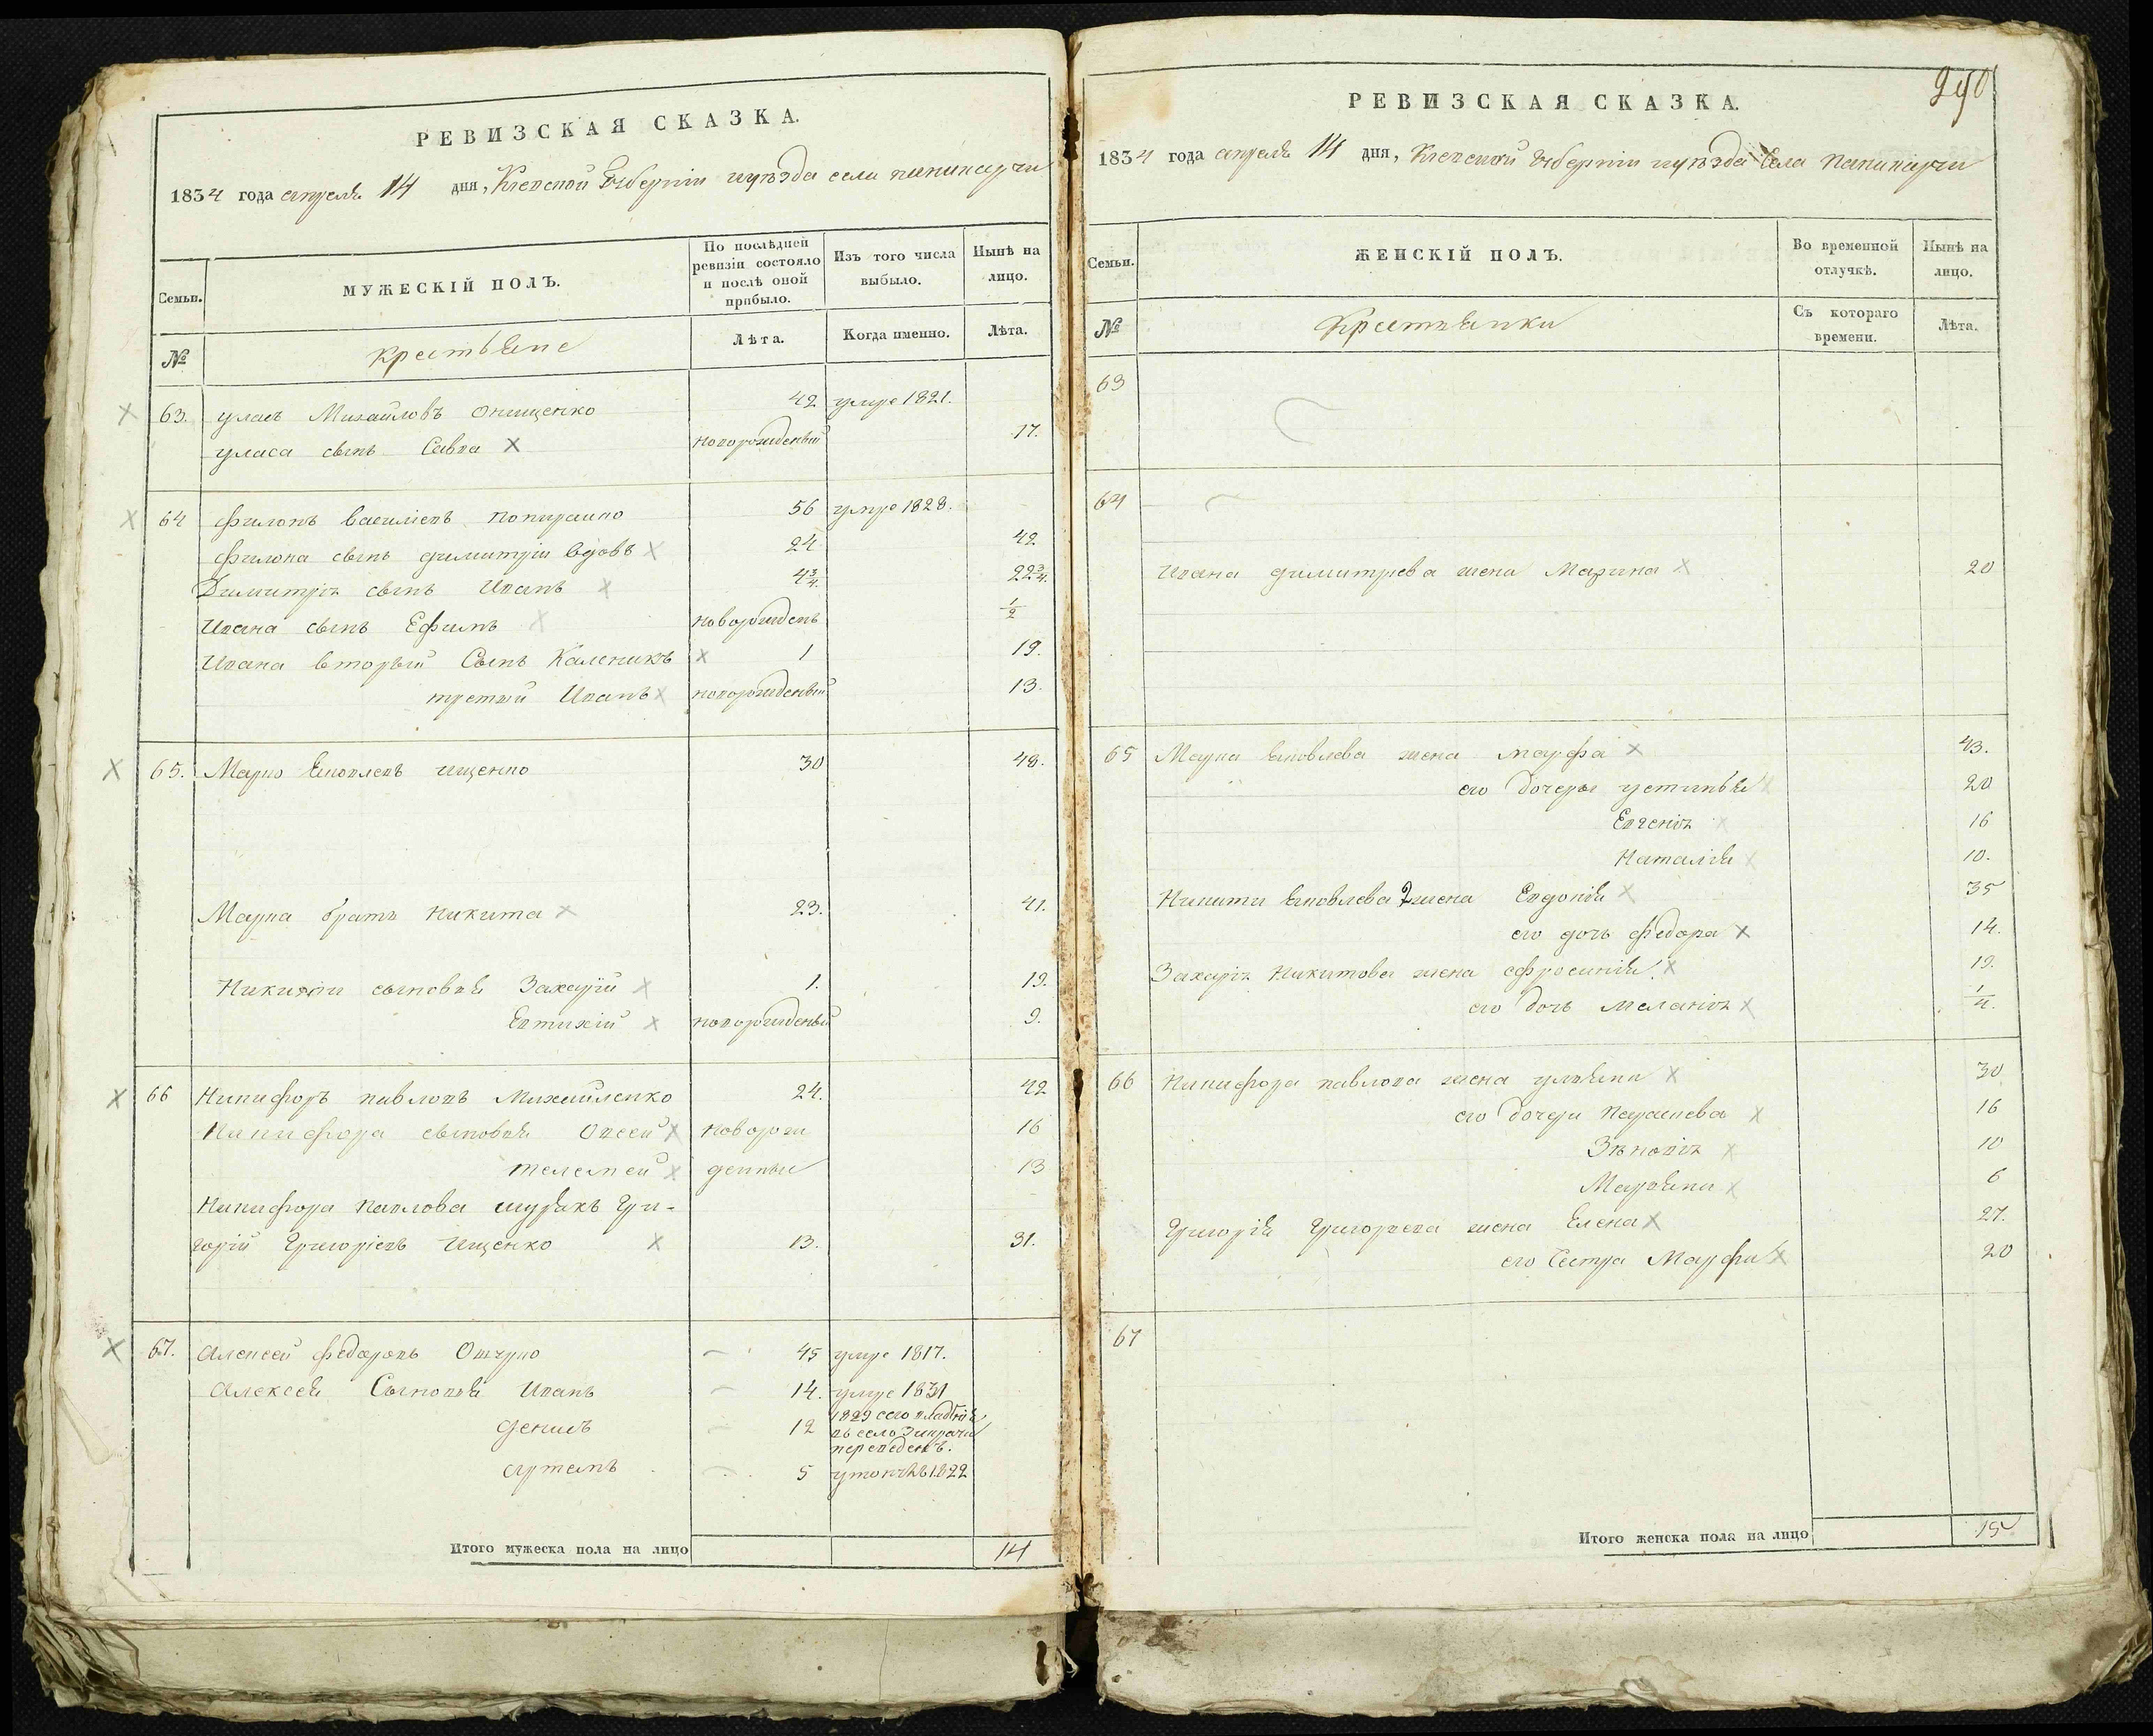 РЕВИЗСКАЯ СКАЗКА.
1834 года апреля 14 дня, Киевской Губернии иуѣзда села пиипиарчи
Семьи.
МУЖЕСКІЙ ПОЛЪ.
По послѣдней ревизіи состояло и послѣ оной прибыло.
Изъ того числа выбыло.
Нынѣ на лицо.
№
крестьяне
Лѣта.
Когда именно.
Лѣта.
63. уласъ Михайловъ онищенко 42 умре 1821.
уласа сынъ Савва новорожденый 17.
64 филонъ василіевъ 56 умре 1828.
филона сынъ димитрій вдовъ 24 42
Димитрія сынъ Иванъ 4 3/4 22 3/4.
Ивана сынъ Ефимъ новорожденъ 1/2
Ивана вторый Сынъ Каленикъ 1 19.
третій Иванъ новорожденый 13.
65. Марко Яковлевъ ищенко 30 48.
Марка братъ Никита 23. 41.
Никиты сыновья Захарій 1. 19.
Евтихій новорожденый 9.
66 Никифоръ павловъ Михайленко 24. 42
Никифора сыновья Овсей новорож 16
телемей денные 13
Никифора Павлова шурякъ Гри-
горій Григоріевъ Ищенко 13. 31.
67. Алексей федоровъ 45 умре 1817.
Алексея Сыновья Иванъ 14. умре 1831
денисъ 12 1829 сего владѣнія
въ село
переведенъ.
артемъ 5 1822
Итого мужеска пола на лицо 14
290
РЕВИЗСКАЯ СКАЗКА.
1834 года апреля 14 дня, Киевской Губерніи иуѣзда Села
Семьи.
ЖЕНСКІЙ ПОЛЪ.
Во временной отлучкѣ.
Нынѣ на лицо.
№
Крестьянки
Съ котораго времени.
Лѣта.
63
64
Ивана димитрева жена Марина 20
65 Марка Яковлева жена марфа 43.
его дочеры устинья 20
Евгенія 16
Наталія 10.
Никиты Яковлева 2 жена Евдокія 35
его дочь федора 14.
Захарія Никитова жена ефросинія 19.
его дочь Меланія 1/4.
66 Никифора павлова жена ульяна 30
его дочери Парасиева 16
Зѣновія 10
Марьяна 6
Григорія Григорьева жена Елена 27.
его Сестра Марфа 20
67
Итого женска пола на лицо 15